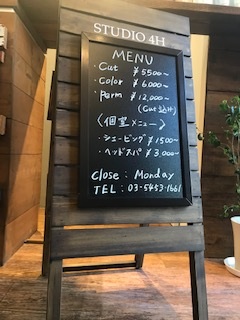 STUDIO 4H
MENU
・Cut ¥5500~
・Color ¥6,000~
・Parm ¥12,000~
(Cut 込み)
〈個室メニュー〉
・シェービング ¥1500~
・ヘッドスパ ¥3,000~
Close : Monday
TEL : 03-5453-1661